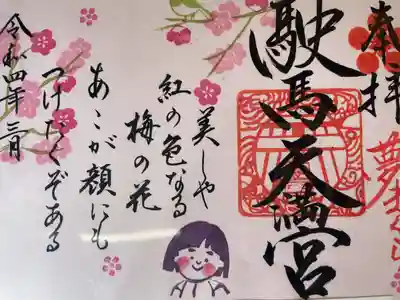 奉拝
駛馬天満宮
美しや
紅の色なる
梅の花
あこが顔にも
つけたくぞある
令和四年三月